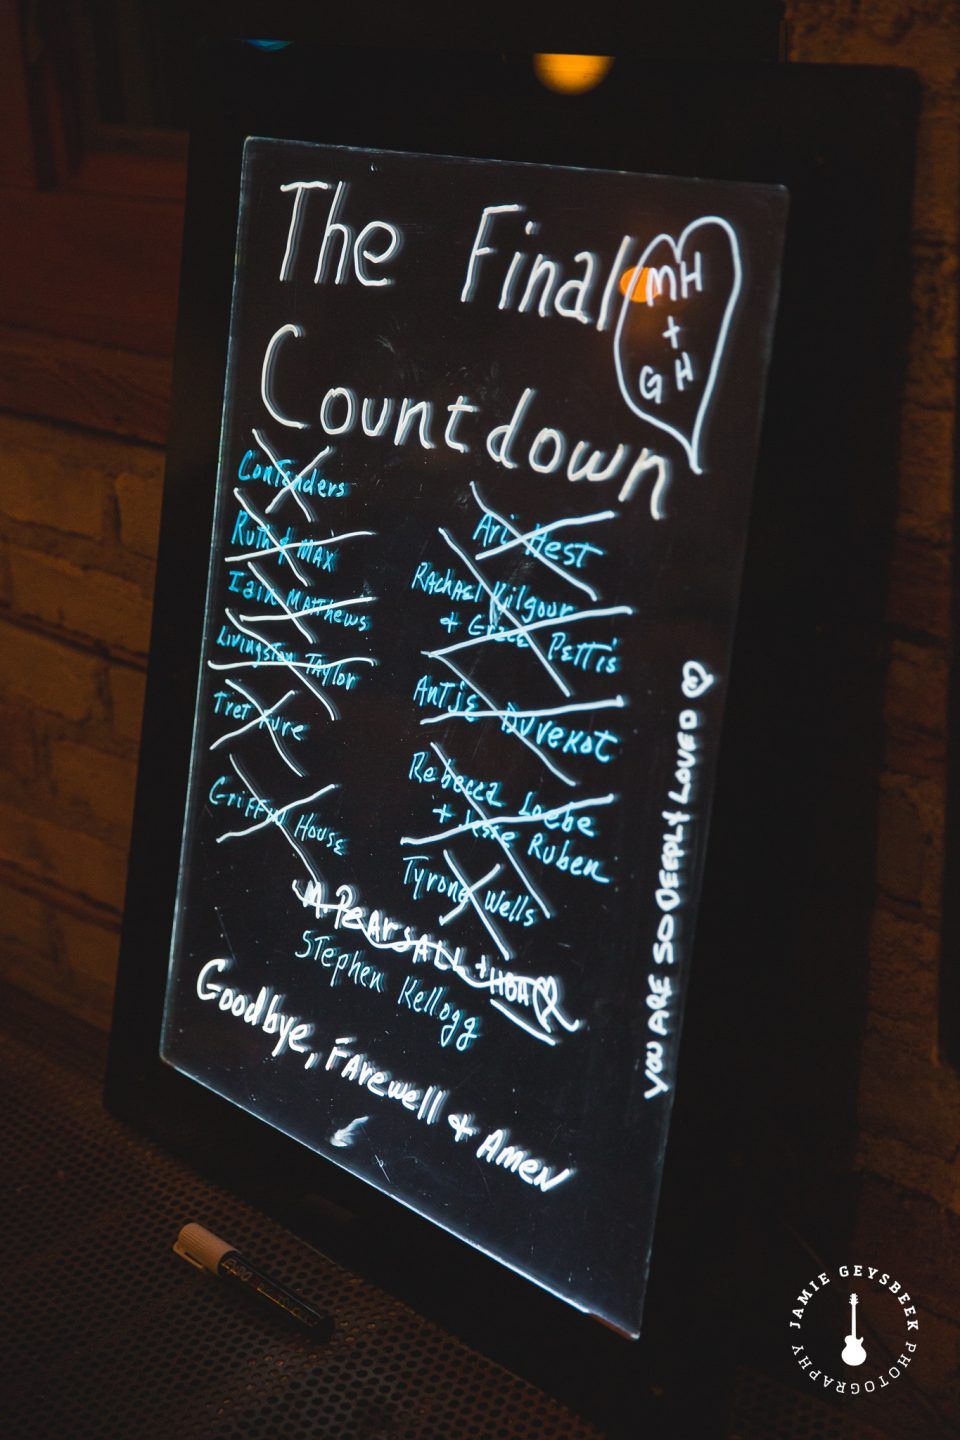 The Final
Countdown
MH
+
GH
Contenders
Ruth & Max
Iain Matthews
Livingston Taylor
Tret Fure
Griffin House
Ari Hest
Rachael Kilgour
+ Grace Pettis
Antje Duvekot
Rebecca Loebe
+ Jesse Ruben
Tyrone Wells
M. PEARSALL +
Stephen Kellogg
Goodbye, Farewell & Amen
YOU ARE SO DEEPLY LOVED
JAMIE GEYSBEEK PHOTOGRAPHY